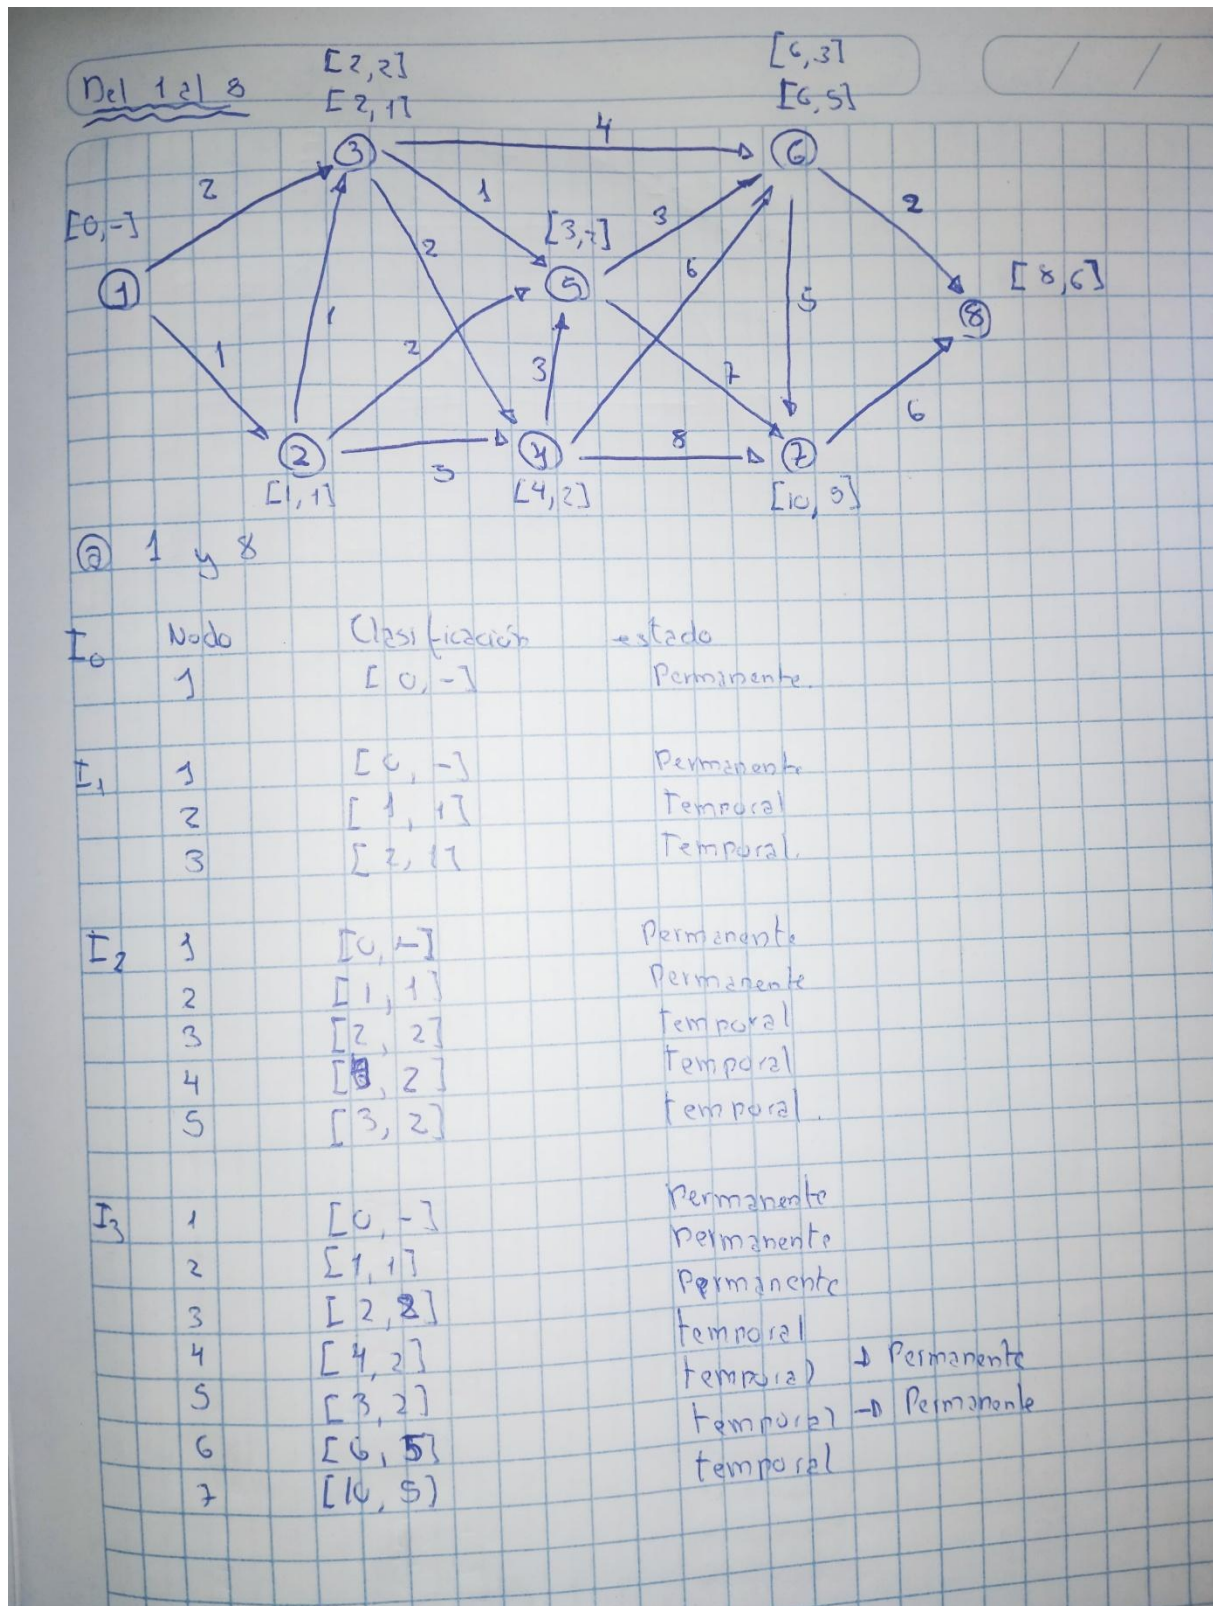 Del 1 al 8
[2,2]
[2,1]
[6,3]
[6,5]
4
2
1
[0,-]
3
6
2
2
[3,2]
3
6
5
2
[8,6]
1
5
8
1
1
2
3
7
6
2
8
4
7
3
[1,1]
[4,2]
[10,5]
a 1 y 8
I0 Nodo Clasificación estado
1 [0,-] Permanente.
I1 1 [0,-] Permanente
2 [1,1] Temporal
3 [2,1] Temporal.
I2 1 [0,-] Permanente
2 [1,1] Permanente
3 [2,2] temporal
4 [ , 2] temporal
5 [3,2] temporal.
I3 1 [0,-] Permanente
2 [1,1] Permanente
3 [2,2] Permanente
4 [4,2] temporal
5 [3,2] temporal → Permanente
6 [6,5] temporal → Permanente
7 [10,5) temporal